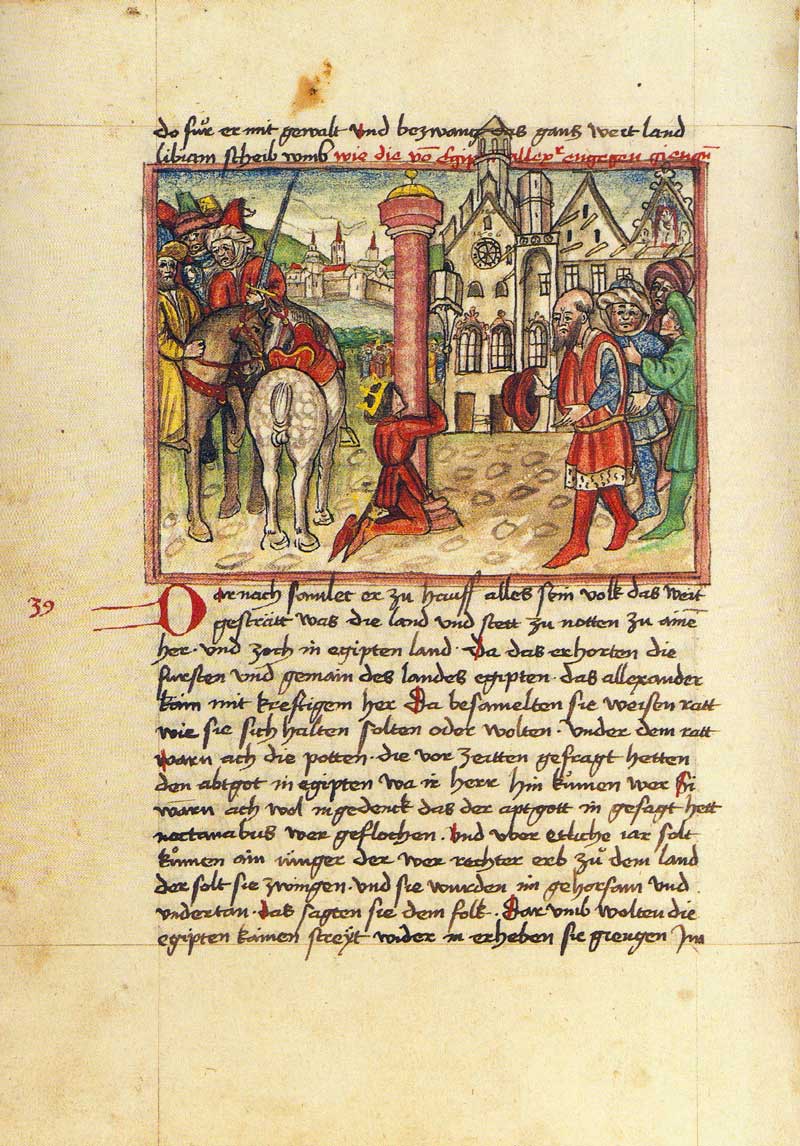 do fůr er mit gewalt Vnd bezwang das gantz weit land
libiam scheib vmb wie die võ Egip allexͬ engegen giengn̄
39
Dar nach samlet er zu hauff alles sein volk das weit
gesträtt was die land vnd stett zu notten zu ainē
her · vnd zoch in egipten land · Da das erhorten die
fursten vnd gemain des landes egipten · das allexander
kam mit kreftigem her Da besamelten sie weisen ratt
wie sie sich halten solten oder wolten · vnder dem ratt
warn ach die potten · die vor zeitten gefragt hetten
den abtgot in egipten wa ir herr hin kůmen wer Si
warn ach wol ingedenck das der aptgott in gesagt hett
nectanabus wer geflochen · Vnd vber etliche iar solt
kůmen ain iünger der wer rechter erb zů dem land
der solt sie zwingen · vnd sie wurden im gehorsam vnd
vndertan · das sagten sie dem folk · Dar vmb wolten die
egipten kainen streÿt wider in erheben sie giengen Im